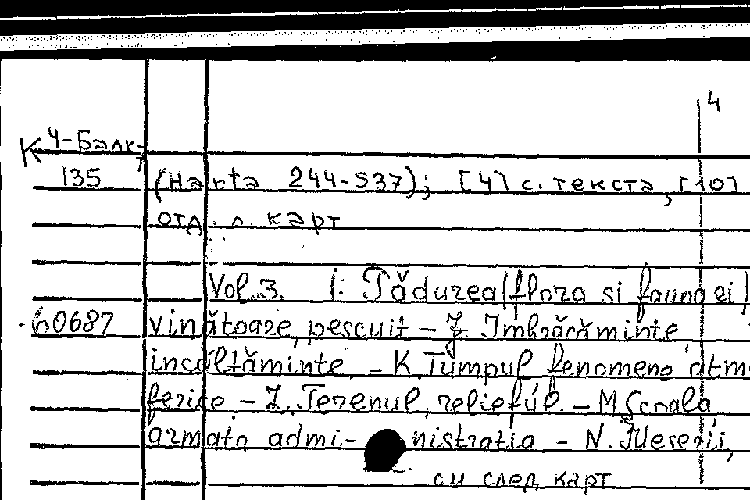 4
К 4-Балк-
135 (Harta 244-537); [4] с. текста, [10]
отд. л. карт
Vol. 3. I: Pădurea (flora si fauna ei)
60687 vinătoare, pescuit – J. Imbrăcăminte,
incălțăminte. – K. Timpul fenomene atmo
ferice – L. Terenul, relieful. – M. Scoala
armata admi- nistratia – N. Meserii,
см след карт